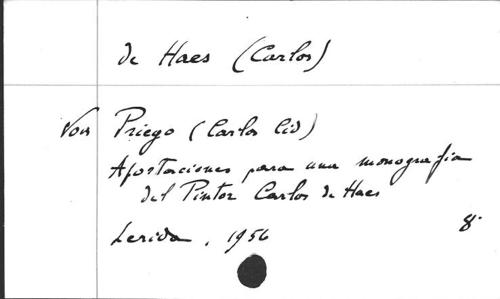 de Haes (Carlos)
Voir Priego (Carlos Cid)
Aportaciones para una monografia
del Pintor Carlos de Haes
Lerida, 1956 8º